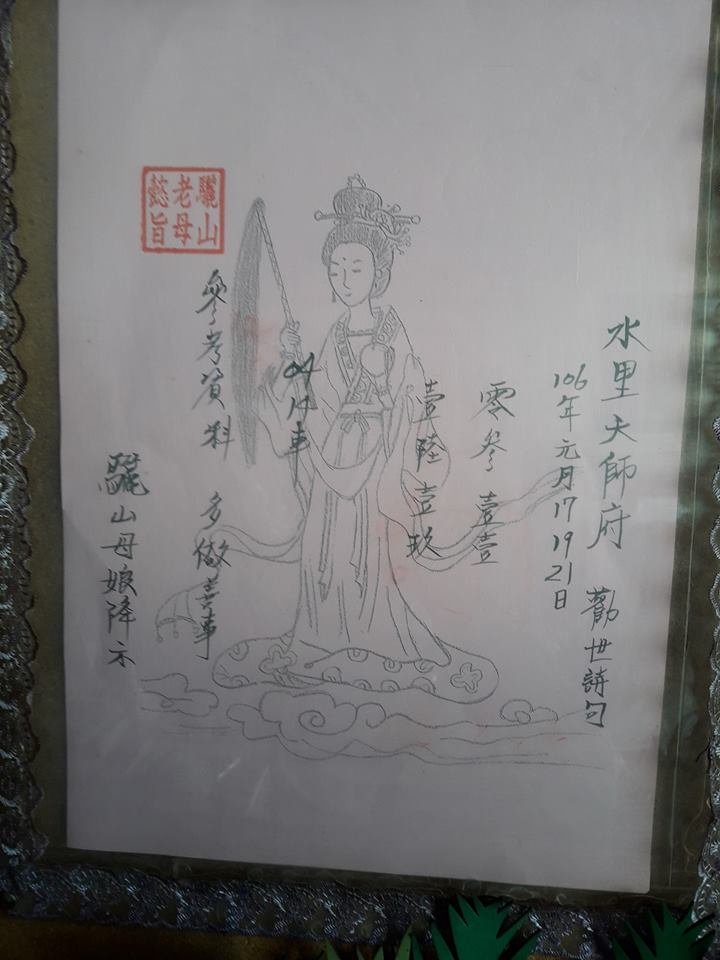 水里大師府 勸世詩句
106年元月17 19 21日
零參壹壹
壹陸壹玖
04 12車
參考資料 多做善事
驪山母娘降示
驪山
老母
懿旨